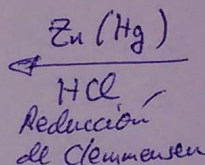 Zn (Hg)
HCl
Reducción
de Clemmensen